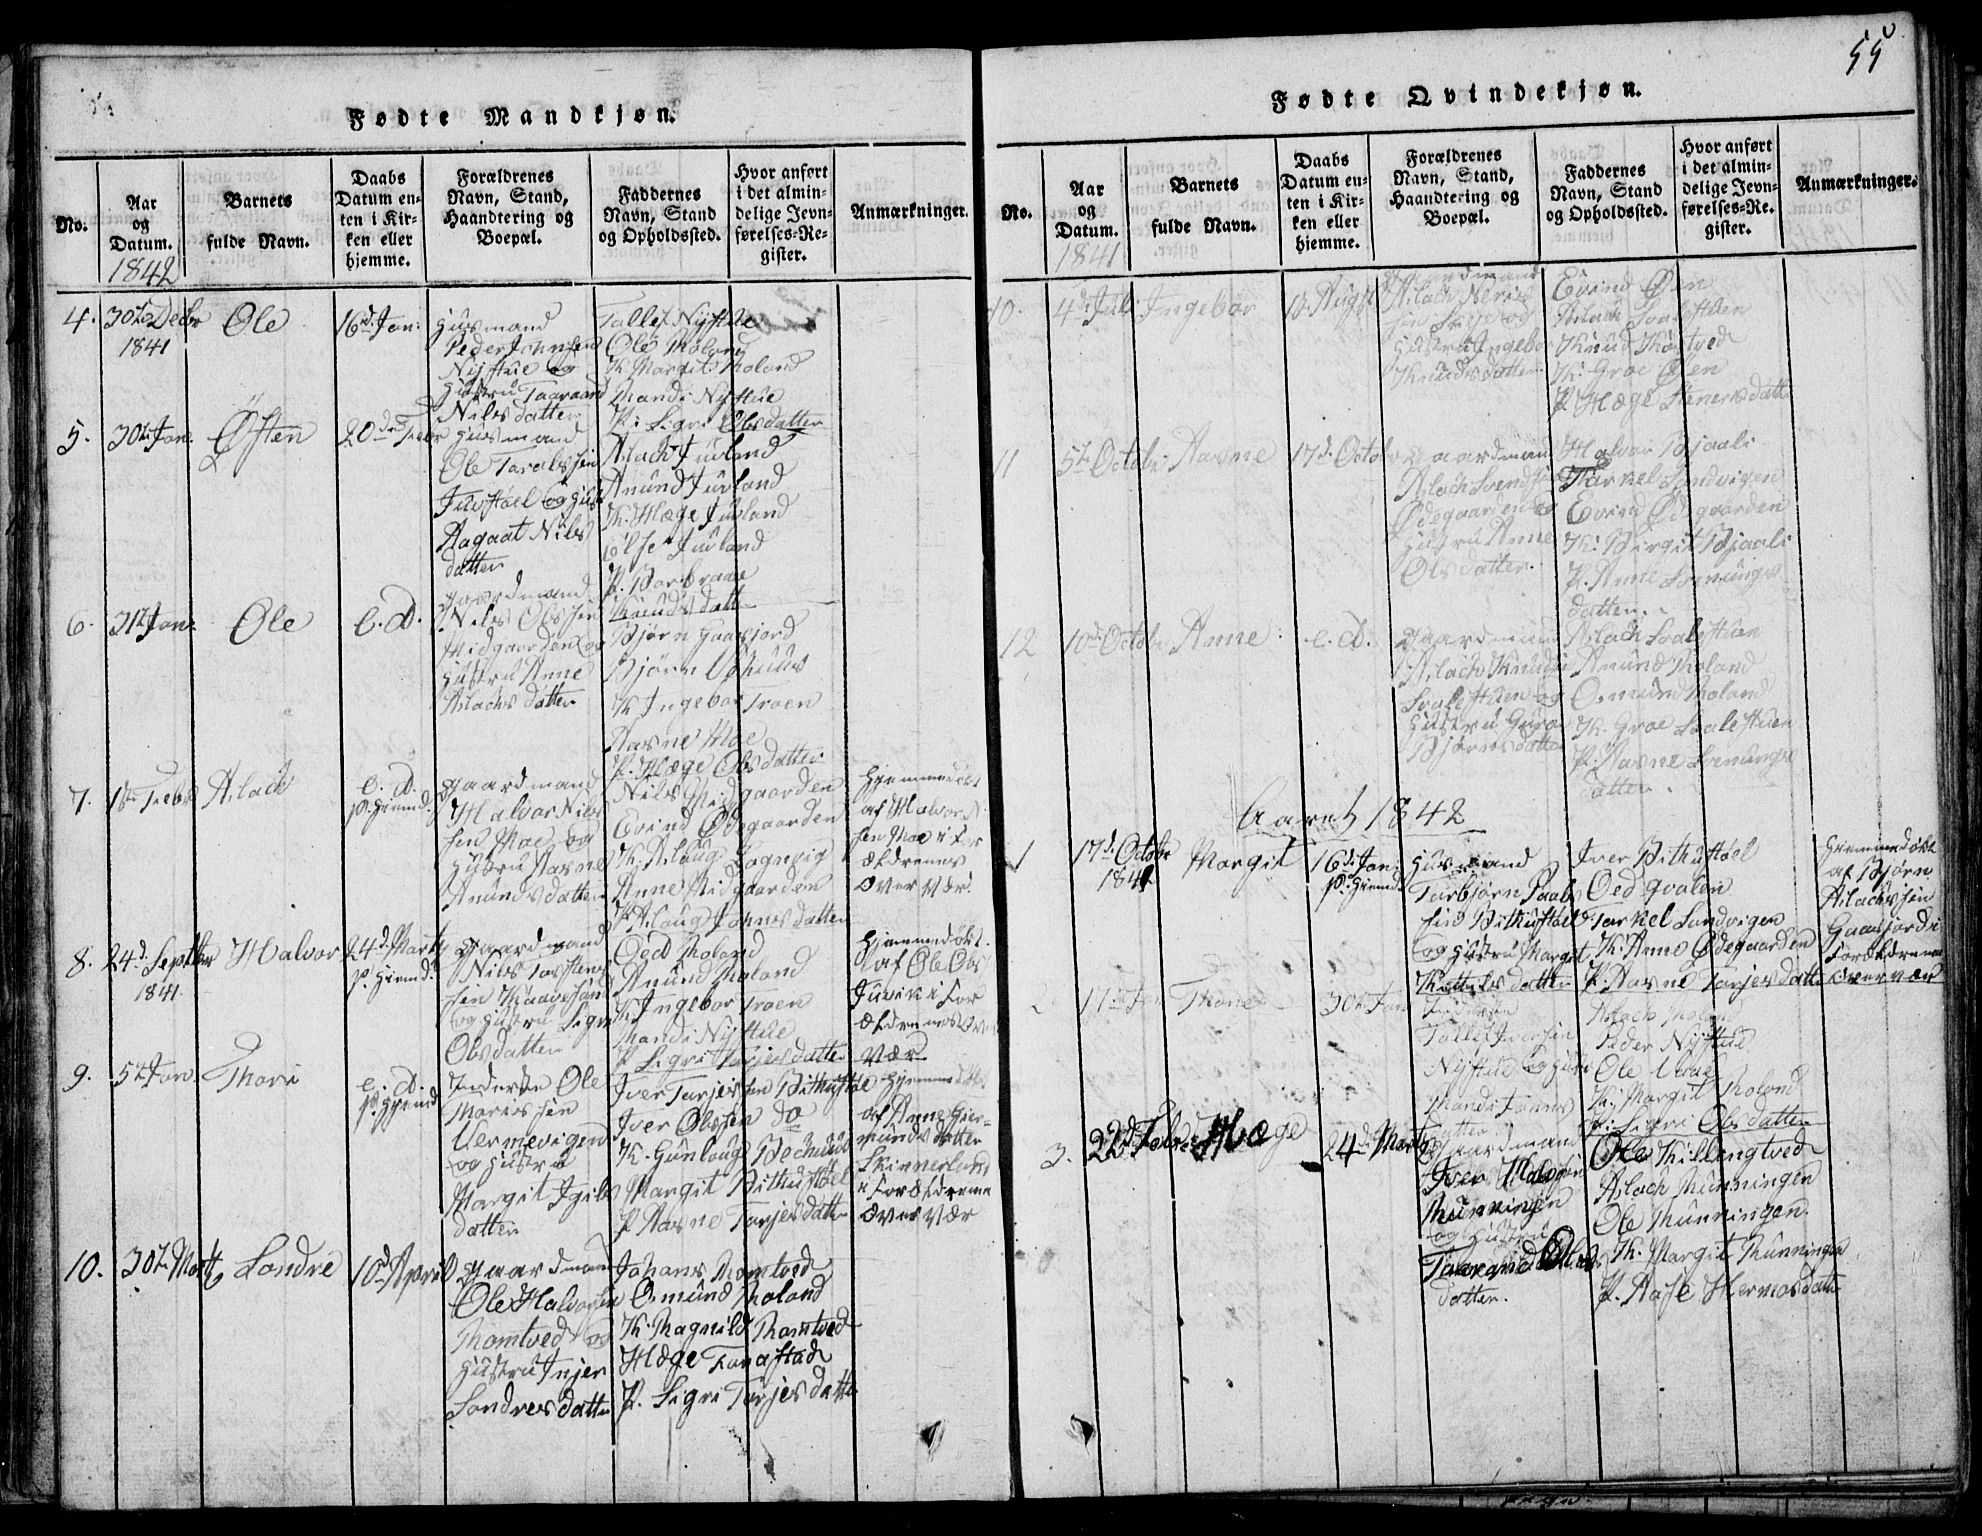 Fødte Mandkjøn.
No.
Aar
og
Datum.
1842
Barnets
fulde Navn.
Daabs
Datum en-
ten i Kir-
ken eller
hjemme.
Forældrenes
Navn, Stand,
Haandtering og
Boepæl.
Faddernes
Navn, Stand
og Opholdssted.
Hvor anført
i det almin-
delige Jevn-
førelses-Re-
gister.
Anmærkninger.
4.
30te Decbr
1841
Ole
16d. Jan:
Huusmand
Peder Johnsen
Nystue og
Hustru Taaraand
Nilsdatter
Tallef Nystue
Ole Moland
K. Margit Moland
Mandi Nystue
P. Sigri Olsdatter
5.
30te Jan.
Østen
20de Febr
Huusmand
Ole Taralssen
Juvstøel og Hust
Aagaat Nils
datter
Aslach Juvland
Anund Juvland
K. Hæge Juvland
Else Juvland
P. Barbraae
Knudsdatt
6.
31te Jan.
Ole
e. D.
Gaardmand
Nils Olssen
Midgaarden og
Hustru Anne
Aslachsdatter
Bjørn Gaasjord
Bjørn Ushuus
K Ingebor Troen
Aasne Moe
P. Hæge Olsdatter
7.
1ste Febr
Aslach
e. D.
p. Hjemd.
Gaardmand
Halvor Nils
sen Moe og
Hustru Aasne
Anundsdatter
Nils Midgaarden
Evind Ødegaarden
K. Aslaug Lognvig
Anne Midgaarden
P. Aslaug Johnsdatter
Hjemmedøbt
af Halvor N.
sen Moe i For
ældrenes
Overvær.
8.
24d. Septbr
1841
Halvor
24d. Marts
p. Hjemd.
Gaardmand
Nils Torstens
sen
og Hustru Signe
Olsdatter
Oed Moland
Anund Moland
K Ingebor Troen
Mandi Nystue
P. Sigri Tarjesdatter
Hjemmedøbt
af Ole Ols
Juvik i For
ældrenes Over
vær
9.
5te Jan.
Thore
e. D.
p. Hjemd
Inderste Ole
Mories sen
Vermevigen
og Hustru
Margit Igils
datter
Iver Tarjessen Bithustøl
Iver Olssen do
K. Gunlaug
Margit Bithustøel
P. Aasne Tarjesdatter
Hjemmedøbt
af Anne Gier-
mundsdatter
Skinnerland
i Forældrenes
Overvær
10.
30te Marts
Sondre
10d April
Gaardmand
Ole Halvorsen
Momtved og
Hustru Injer
Sondresdatter
Johans Momtved
Osmund Moland
K. Magnild Momtved
Hæge
P. Sigri Tarjesdatte
55
Fødte Qvindekjøn.
No.
Aar
og
Datum.
1841
Barnets
fulde Navn.
Daabs
Datum en-
ten i Kir-
ken eller
hjemme.
Forældrenes
Navn, Stand,
Haandtering og
Boepæl.
Faddernes
Navn, Stand
og Opholdssted.
Hvor anført
i det almin-
delige Jevn-
førelses-Re-
gister.
Anmærkninger.
10.
4d. Juli
Ingebor
Gaardmand
Aslach Neris
sen Seyje og
Hustru Ingebor
Knudsdatter
Evind Øen
Aslach Svalestuen
Knud Momtved
K. Groe Øen
P Hæge Stenersdatt
11
5te Octobr
Aasne
17d. Octobr
Gaardmand
Aslach Svendsen
Ødegaarden og
Hustru Anne
Olsdatter.
Halvor Bjaali
Tarkel Sandvigen
Evind Ødegaarden
K. Birgit Bjaali
P. Anne Svenungs
datter.
12
10d Octobr
Anne
e. D.
Gaardmand
Aslach Knudsen
Svalestuen og
Hustru Guroe
Bjørnsdatter
Aslach Svalestuen
Anund Moland
Osmund Moland
K. Groe Svalestuen
P. Aasne Svenungs
datter.
Aaret 1842
1
17d. Octobr
1841
Margit
16d. Jan:
p. Hjemd
Huusmand
Tarbjørn Paals
sen Bithustøel
og Hustru Margit
Kittelsdatter
Iver Bithustøel
Oed Qvalen
Tarkel Sandvigen
K. Anne Ødegaarden
P. Aasne Tarjesdatt
Hjemmedøbt
af Bjørn
Aslachssen
Gaasjord i
Forældrenes
Overvær
2
17de Jan
Thone
30te Jan
Inderste
Tallef Iverssen
Nystue og Hustr
Mandi Johns
datter
Aslach Moland
Peder Nystue
Ole Vraae
K. Margit Moland
P. Sigri Olsdatter
3.
22d. Febr.
Hæge
24d. Marts
Gaardmand
Iver Halvorsen
Munningen
og Hustru
Taaraand Ols
datter.
Ole Killingtved
Aslach Munningen
Ole Munningen
K. Margit Munningen
P. Aase Hermosdatt